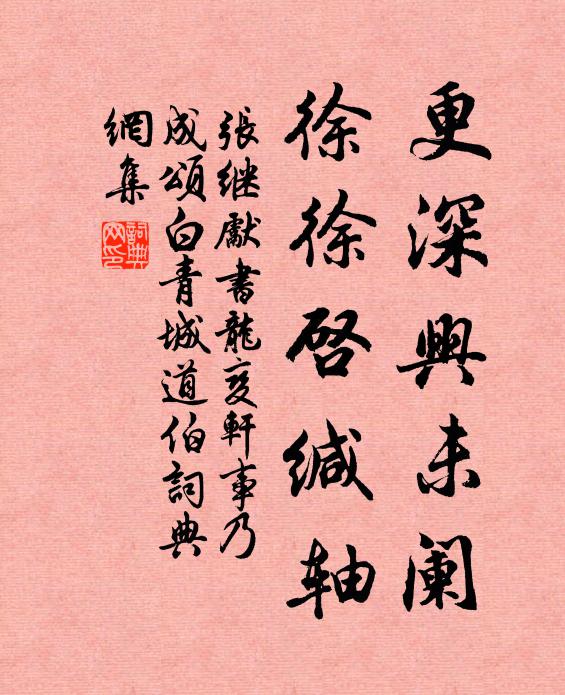 更深興未阑
徐徐啓缄轴
張继獻書龍变軒事乃
成頌白青城道伯詞典
網集
詞典
网印